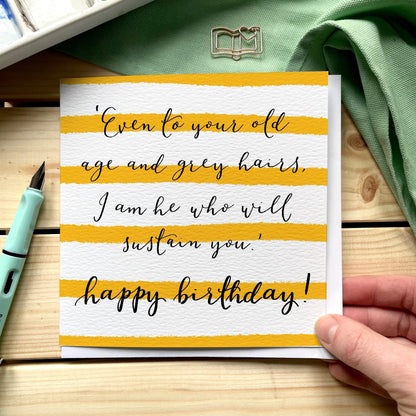 'Even to your old
age and grey hairs,
I am he who will
sustain you.'
happy birthday!